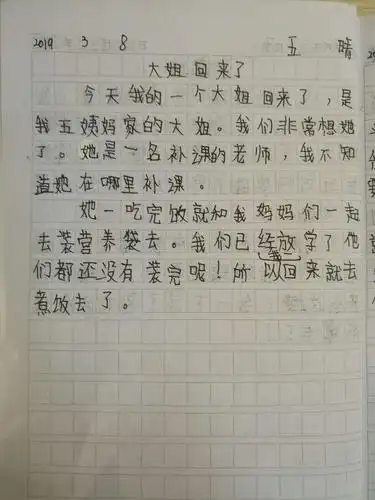 2019 3 8 五 晴
大姐回来了
今天我的一个大姐回来了,是
我五姨妈家的大姐。我们非常想她
了。她是一名补课的老师,我不知
道她在哪里补课。
她一吃完饭就和我妈妈们一起
去装营养袋去。我们已经放学了他
们都还没有装完呢!所以回来就去
煮饭去了。